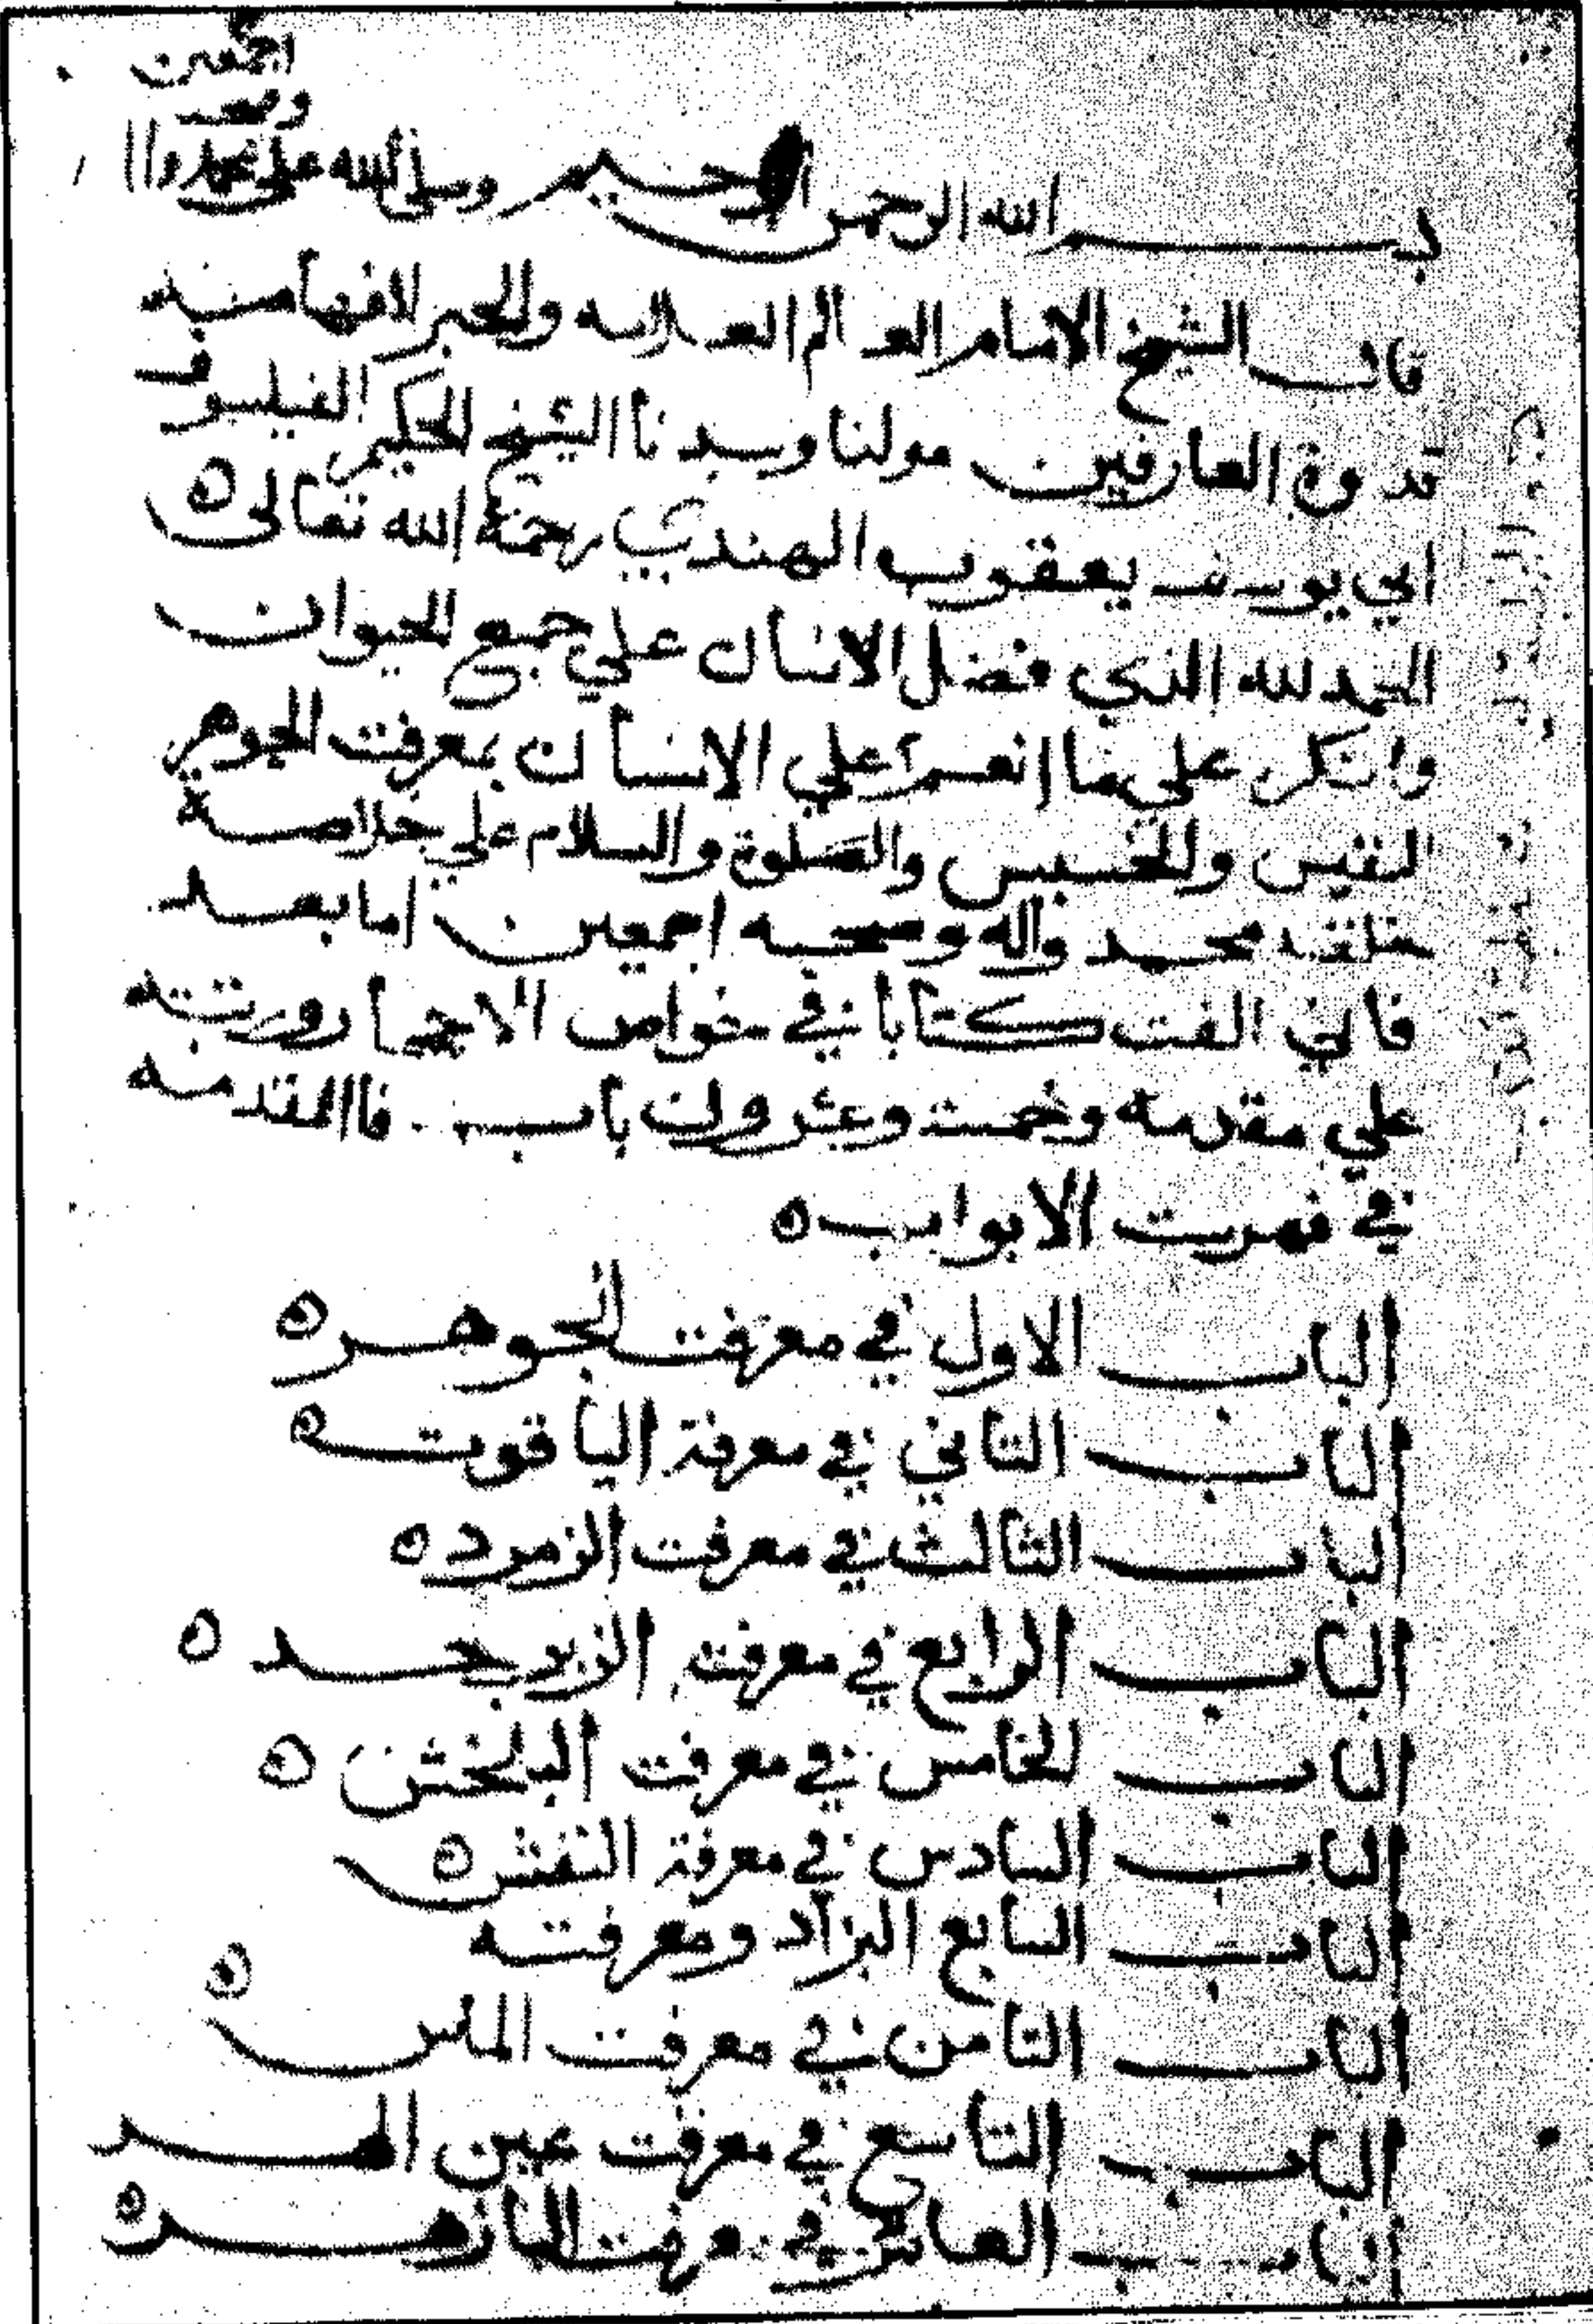 بسم الله الرحمن الرحيم وصلى الله على محمد وا
وصحبه
اجمعين
قال الشيخ الامام العالم العلامه والحبر الافهامنه
قدوة العارفين مولنا وسيدنا الشيخ الحكيم الفيلسوف
ابي يوسف يعقوب الهندي رحمة الله تعالى
الحمد لله الذي فضل الانسان علي جميع الحيوان
واشكر علي ما انعم علي الانسان بمعرفت الجوهر
النفيس والخسيس والصلوة والسلام علي خلاصة
خلقه محمد واله وصحبه اجمعين اما بعد
فاني الفت كتابا في خواص الاحجار ورتبته
علي مقدمه وخمست وعشرون باب فاالمقدمه
في فهريت الابواب
الباب الاول في معرفت الجوهر
الباب التاني في معرفة الياقوت
الباب الثالث في معرفت الزمرد
الباب الرابع في معرفت الزبرجد
الباب الخامس في معرفت البلخش
الباب السادس في معرفة النفش
الباب السابع البزاد ومعرفته
الباب التامن في معرفت الماس
الباب التاسع في معرفت عين الهر
الباب العاشر في معرفت البازهر